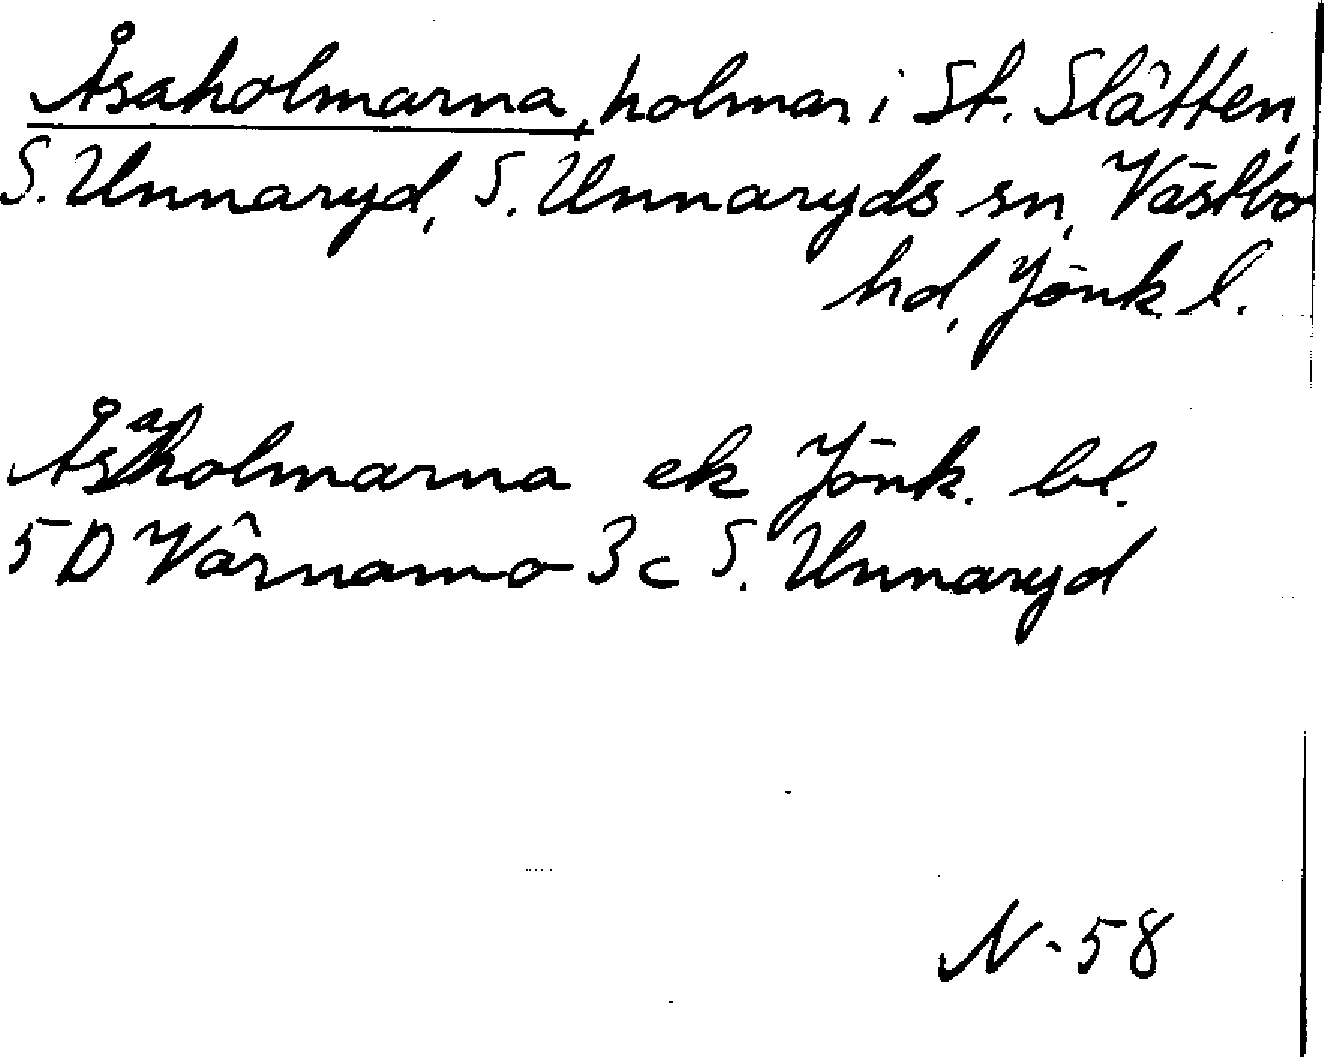 Åsaholmarna, holmar i St. Slätten,
S. Unnaryd, S. Unnaryds sn, Västbo
hd, Jönk. l.
Åsaholmarna ek Jönk. bl.
5D Värnamo 3c S. Unnaryd
N-58